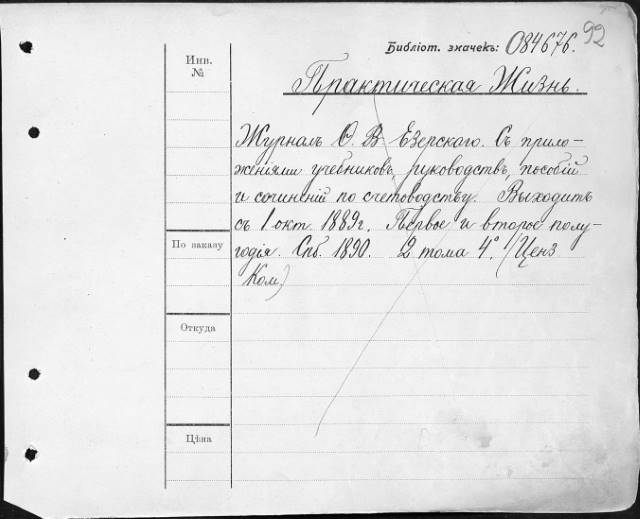 92
Библіот. значекъ: 084676.
Инв.
№
Практическая Жизнь.
Журналъ Ѳ. В. Езерскаго. Съ прило-
женіями учебниковъ, руководствъ, пособій
и сочиненій по счетоводству. Выходитъ
съ 1 окт. 1889 г. Первое и второе полу-
годія. Спб. 1890. 2 тома 4°. (Ценз.
Ком.)
По заказу
Откуда
Цѣна